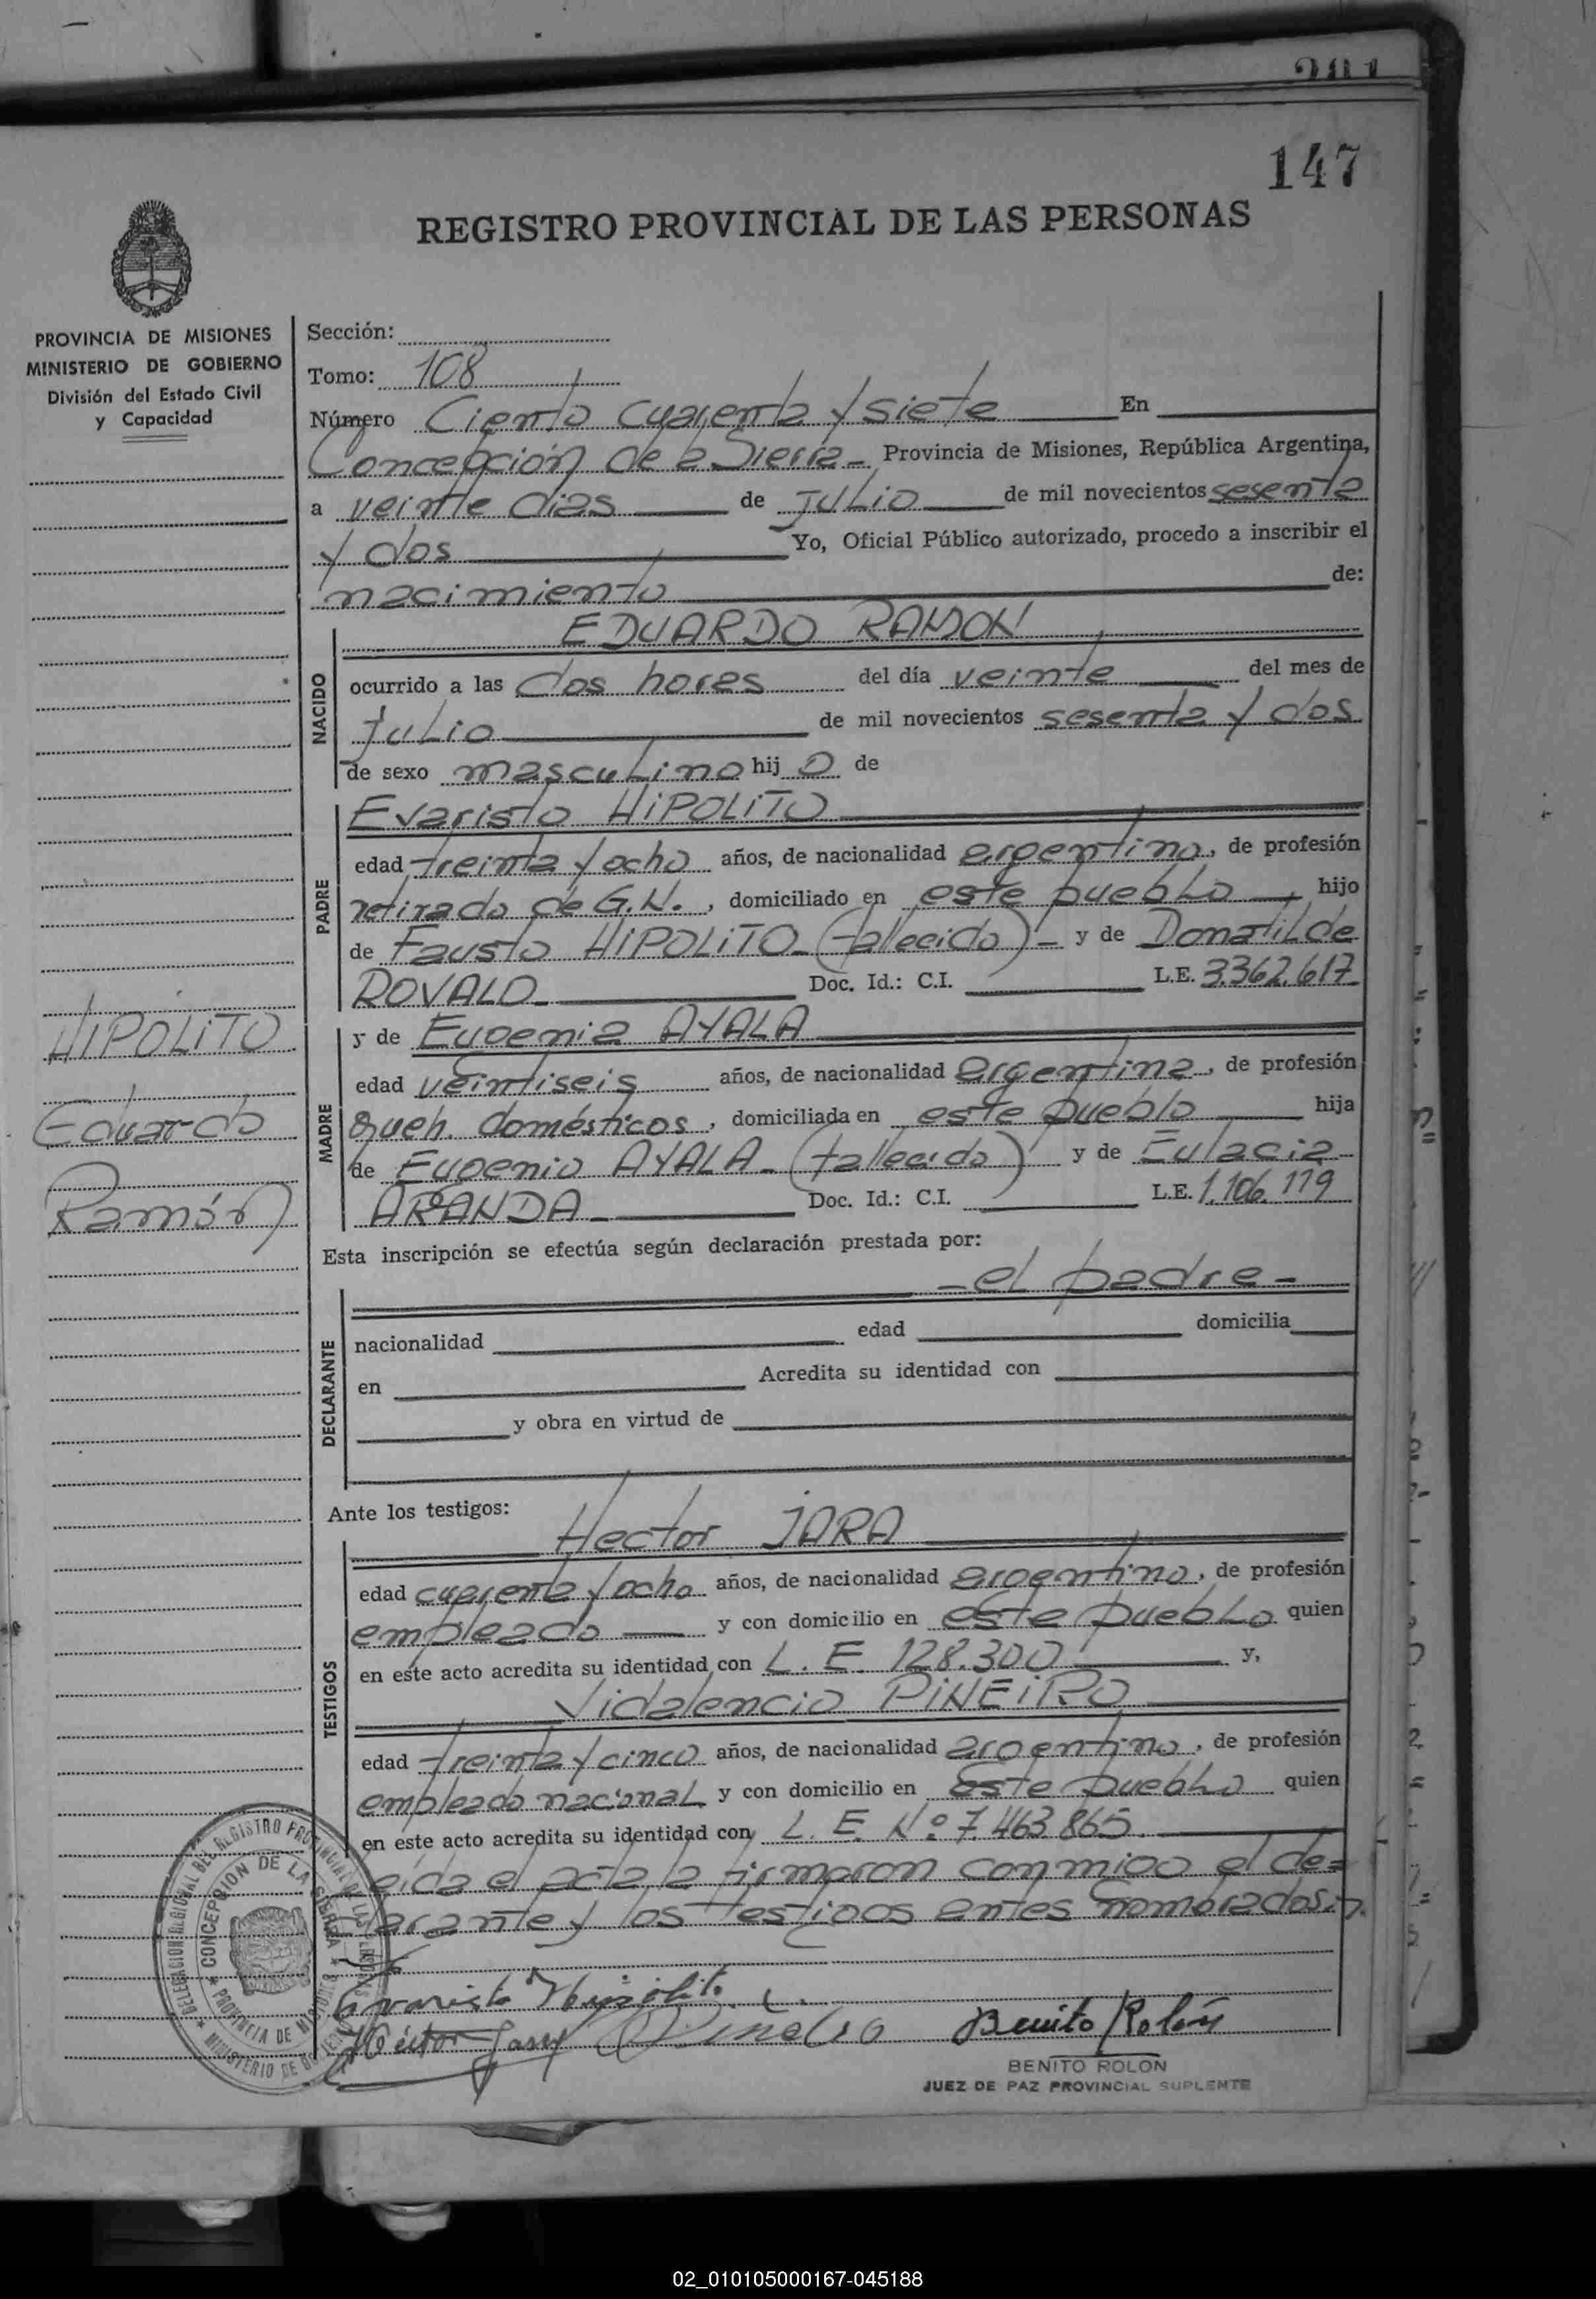 147
REGISTRO PROVINCIAL DE LAS PERSONAS
PROVINCIA DE MISIONES
MINISTERIO DE GOBIERNO
División del Estado Civil
y Capacidad
HIPOLITO
Eduardo
Ramón
Sección:
Tomo: 108
Número Ciento cuarenta y siete En
Concepción de la Sierra - Provincia de Misiones, República Argentina,
a veinte dias de julio de mil novecientos sesenta
y dos Yo, Oficial Público autorizado, procedo a inscribir el
nacimiento de:
NACIDO
EDUARDO RAMON
ocurrido a las dos horas del día veinte del mes de
julio de mil novecientos sesenta y dos
de sexo masculino hij o de
PADRE
Evaristo HIPOLITO
edad treinta y ocho años, de nacionalidad argentino, de profesión
retirado de G.N., domiciliado en este pueblo hijo
de Fausto HIPOLITO - (fallecido) - y de Donatilde
ROVALO Doc. Id.: C.I. L.E. 3.362.617
MADRE
y de Eugenia AYALA
edad veintiseis años, de nacionalidad argentina, de profesión
queh. domésticos, domiciliada en este pueblo hija
de Eugenio AYALA - (fallecido) y de Eulacia
ARANDA - Doc. Id.: C.I. L.E. 1.106.119
Esta inscripción se efectúa según declaración prestada por:
DECLARANTE
- el padre -
nacionalidad edad domicilia
en Acredita su identidad con
y obra en virtud de
Ante los testigos:
TESTIGOS
Hector JARA
edad cuarenta y ocho años, de nacionalidad argentino, de profesión
empleado y con domicilio en este pueblo quien
en este acto acredita su identidad con L. E. 128.300 y,
Vidalencio PIÑEIRO
edad treinta y cinco años, de nacionalidad argentino, de profesión
empleado nacional y con domicilio en Este pueblo quien
en este acto acredita su identidad con L. E. Nº 7.463.865
eida el acta la firmaron conmigo el de=
larante y los testigos antes nombrados.
Evaristo Hipólito
Héctor Jara Piñeiro Benito Rolón
BENITO ROLON
JUEZ DE PAZ PROVINCIAL SUPLENTE
DELEGACION REGIONAL DEL REGISTRO PROVINCIAL DE LAS PERSONAS
CONCEPCION DE LA SIERRA
PROVINCIA DE MISIONES
MINISTERIO DE GOBIERNO
02_010105000167-045188